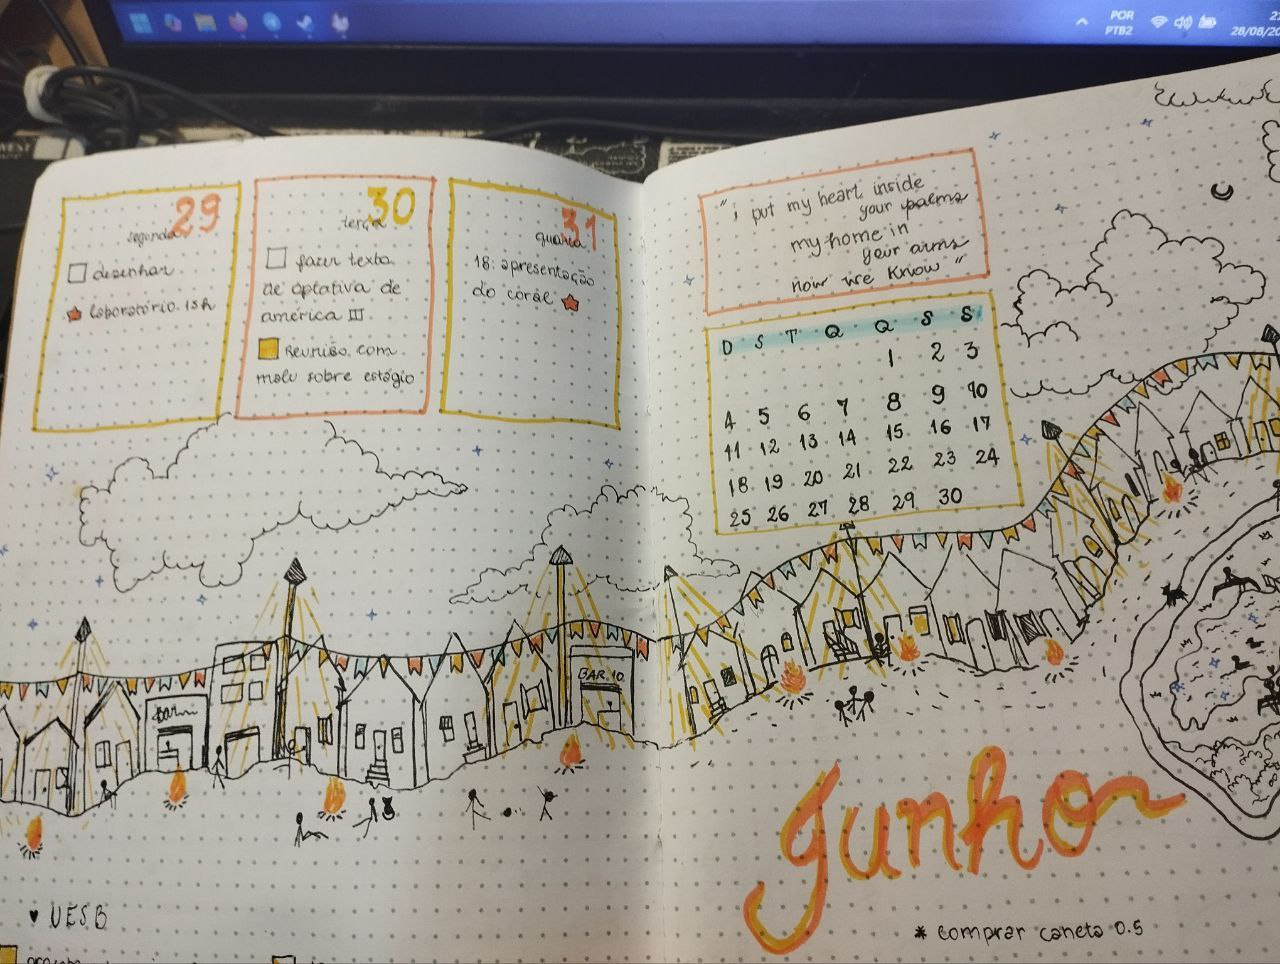 POR
PTB2
28/08/20
segunda 29
desenhar
laboratório. 15h
terça 30
fazer texto
de optativa de
américa III
Reunião com
malu sobre estágio
quarta 31
18: apresentação
do coral
"i put my heart inside
your palms
my home in
your arms
now we know"
D S T Q Q S S
1 2 3
4 5 6 7 8 9 10
11 12 13 14 15 16 17
18 19 20 21 22 23 24
25 26 27 28 29 30
BAR.10
Junho
* comprar caneta 0.5
♥ UESB